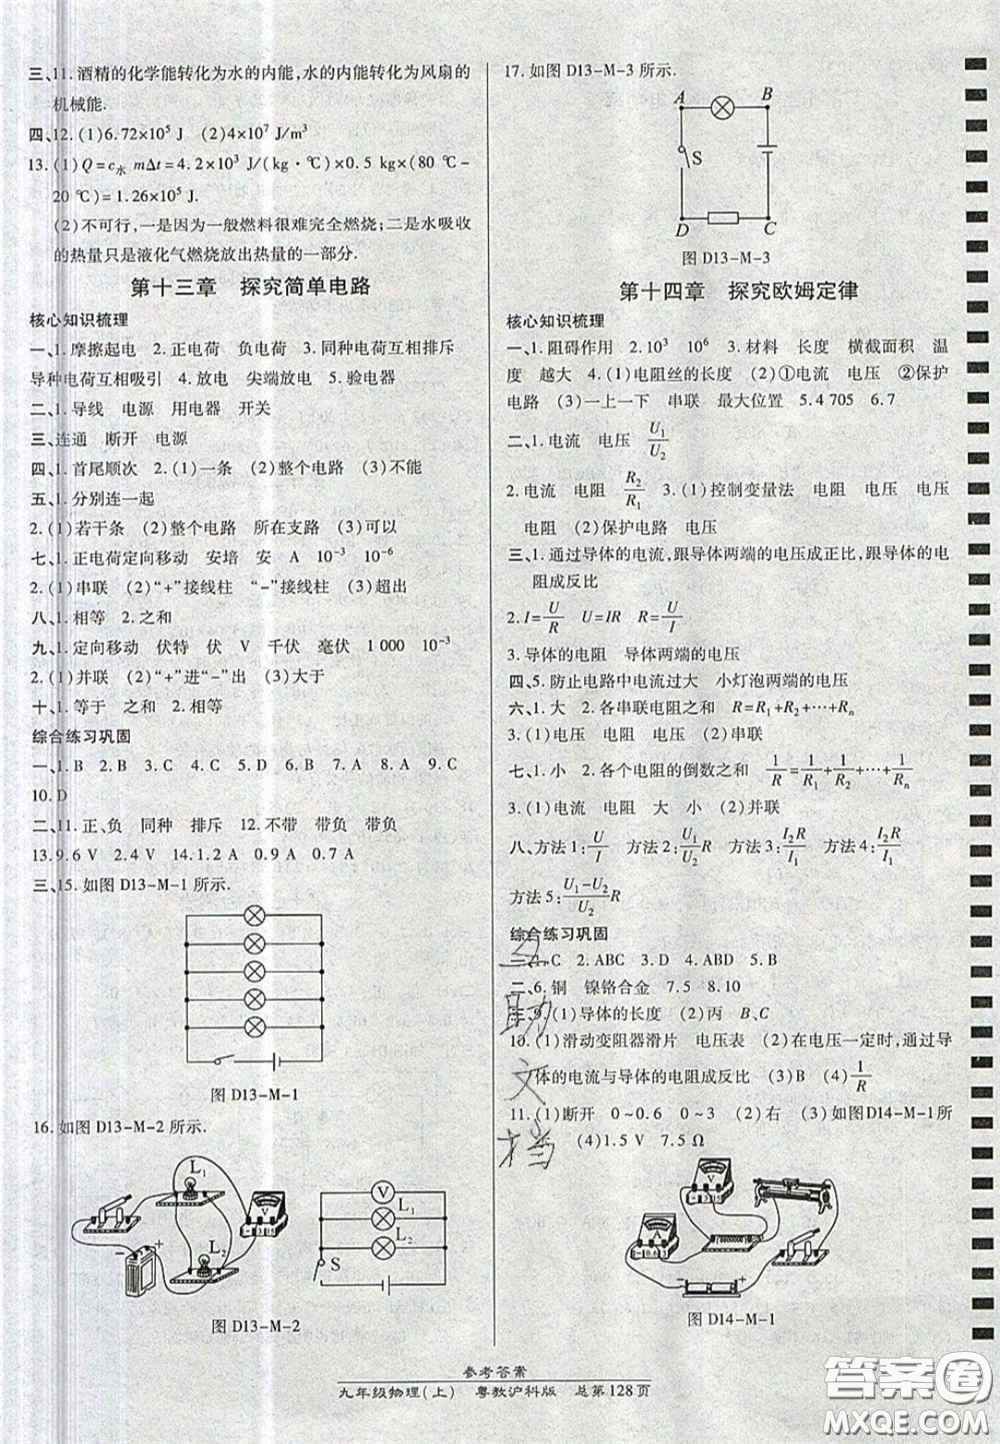 三、11.酒精的化学能转化为水的内能,水的内能转化为风扇的
机械能.
四、12.(1)6.72×10⁵ J (2)4×10⁷ J/m³
13.(1)Q=c水 mΔt=4.2×10³ J/(kg·℃)×0.5 kg×(80 ℃-
20 ℃)=1.26×10⁵ J.
(2)不可行,一是因为一般燃料很难完全燃烧;二是水吸收
的热量只是液化气燃烧放出热量的一部分.
第十三章 探究简单电路
核心知识梳理
一、1.摩擦起电 2.正电荷 负电荷 3.同种电荷互相排斥
异种电荷互相吸引 4.放电 尖端放电 5.验电器
二、1.导线 电源 用电器 开关
三、连通 断开 电源
四、1.首尾顺次 2.(1)一条 (2)整个电路 (3)不能
五、1.分别连一起
2.(1)若干条 (2)整个电路 所在支路 (3)可以
七、1.正电荷定向移动 安培 安 A 10⁻³ 10⁻⁶
2.(1)串联 (2)“+”接线柱 “-”接线柱 (3)超出
八、1.相等 2.之和
九、1.定向移动 伏特 伏 V 千伏 毫伏 1 000 10⁻³
2.(1)并联 (2)“+”进“-”出 (3)大于
十、1.等于 之和 2.相等
综合练习巩固
一、1.B 2.B 3.C 4.C 5.D 6.B 7.A 8.A 9.C
10.D
二、11.正、负 同种 排斥 12.不带 带负 带负
13.9.6 V 2.4 V 14.1.2 A 0.9 A 0.7 A
三、15.如图 D13-M-1 所示.
图 D13-M-1
16.如图 D13-M-2 所示.
L₁
A
L₂
- +
V
L₁
L₂
S
图 D13-M-2
17.如图 D13-M-3 所示.
A B
S
D C
图 D13-M-3
第十四章 探究欧姆定律
核心知识梳理
一、1.阻碍作用 2.10³ 10⁶ 3.材料 长度 横截面积 温
度 越大 4.(1)电阻丝的长度 (2)①电流 电压 ②保护
电路 (3)一上一下 串联 最大位置 5.4 705 6.7
二、1.电流 电压 U₁/U₂
2.电流 电阻 R₂/R₁ 3.(1)控制变量法 电阻 电压 电压
电阻 (2)保护电路 电压
三、1.通过导体的电流,跟导体两端的电压成正比,跟导体的电
阻成反比
2.I=U/R U=IR R=U/I
3.导体的电阻 导体两端的电压
四、5.防止电路中电流过大 小灯泡两端的电压
六、1.大 2.各串联电阻之和 R=R₁+R₂+…+Rₙ
3.(1)电压 电压 电阻 (2)串联
七、1.小 2.各个电阻的倒数之和 1/R=1/R₁+1/R₂+…+1/Rₙ
3.(1)电流 电阻 大 小 (2)并联
八、方法 1:U/I 方法 2:U₁/U₂R 方法 3:I₂R/I₁ 方法 4:I₂R/I₁
方法 5:U₁-U₂/U₂R
综合练习巩固
一、1.C 2.ABC 3.D 4.ABD 5.B
二、6.铜 镍铬合金 7.5 8.10
三、9.(1)导体的长度 (2)丙 B、C
10.(1)滑动变阻器滑片 电压表 (2)在电压一定时,通过导
体的电流与导体的电阻成反比 (3)B (4)1/R
11.(1)断开 0~0.6 0~3 (2)右 (3)如图D14-M-1所
示 (4)1.5 V 7.5 Ω
图 D14-M-1
参考答案
九年级物理(上) 粤教沪科版 总第128页
答案圈
MXQE.COM